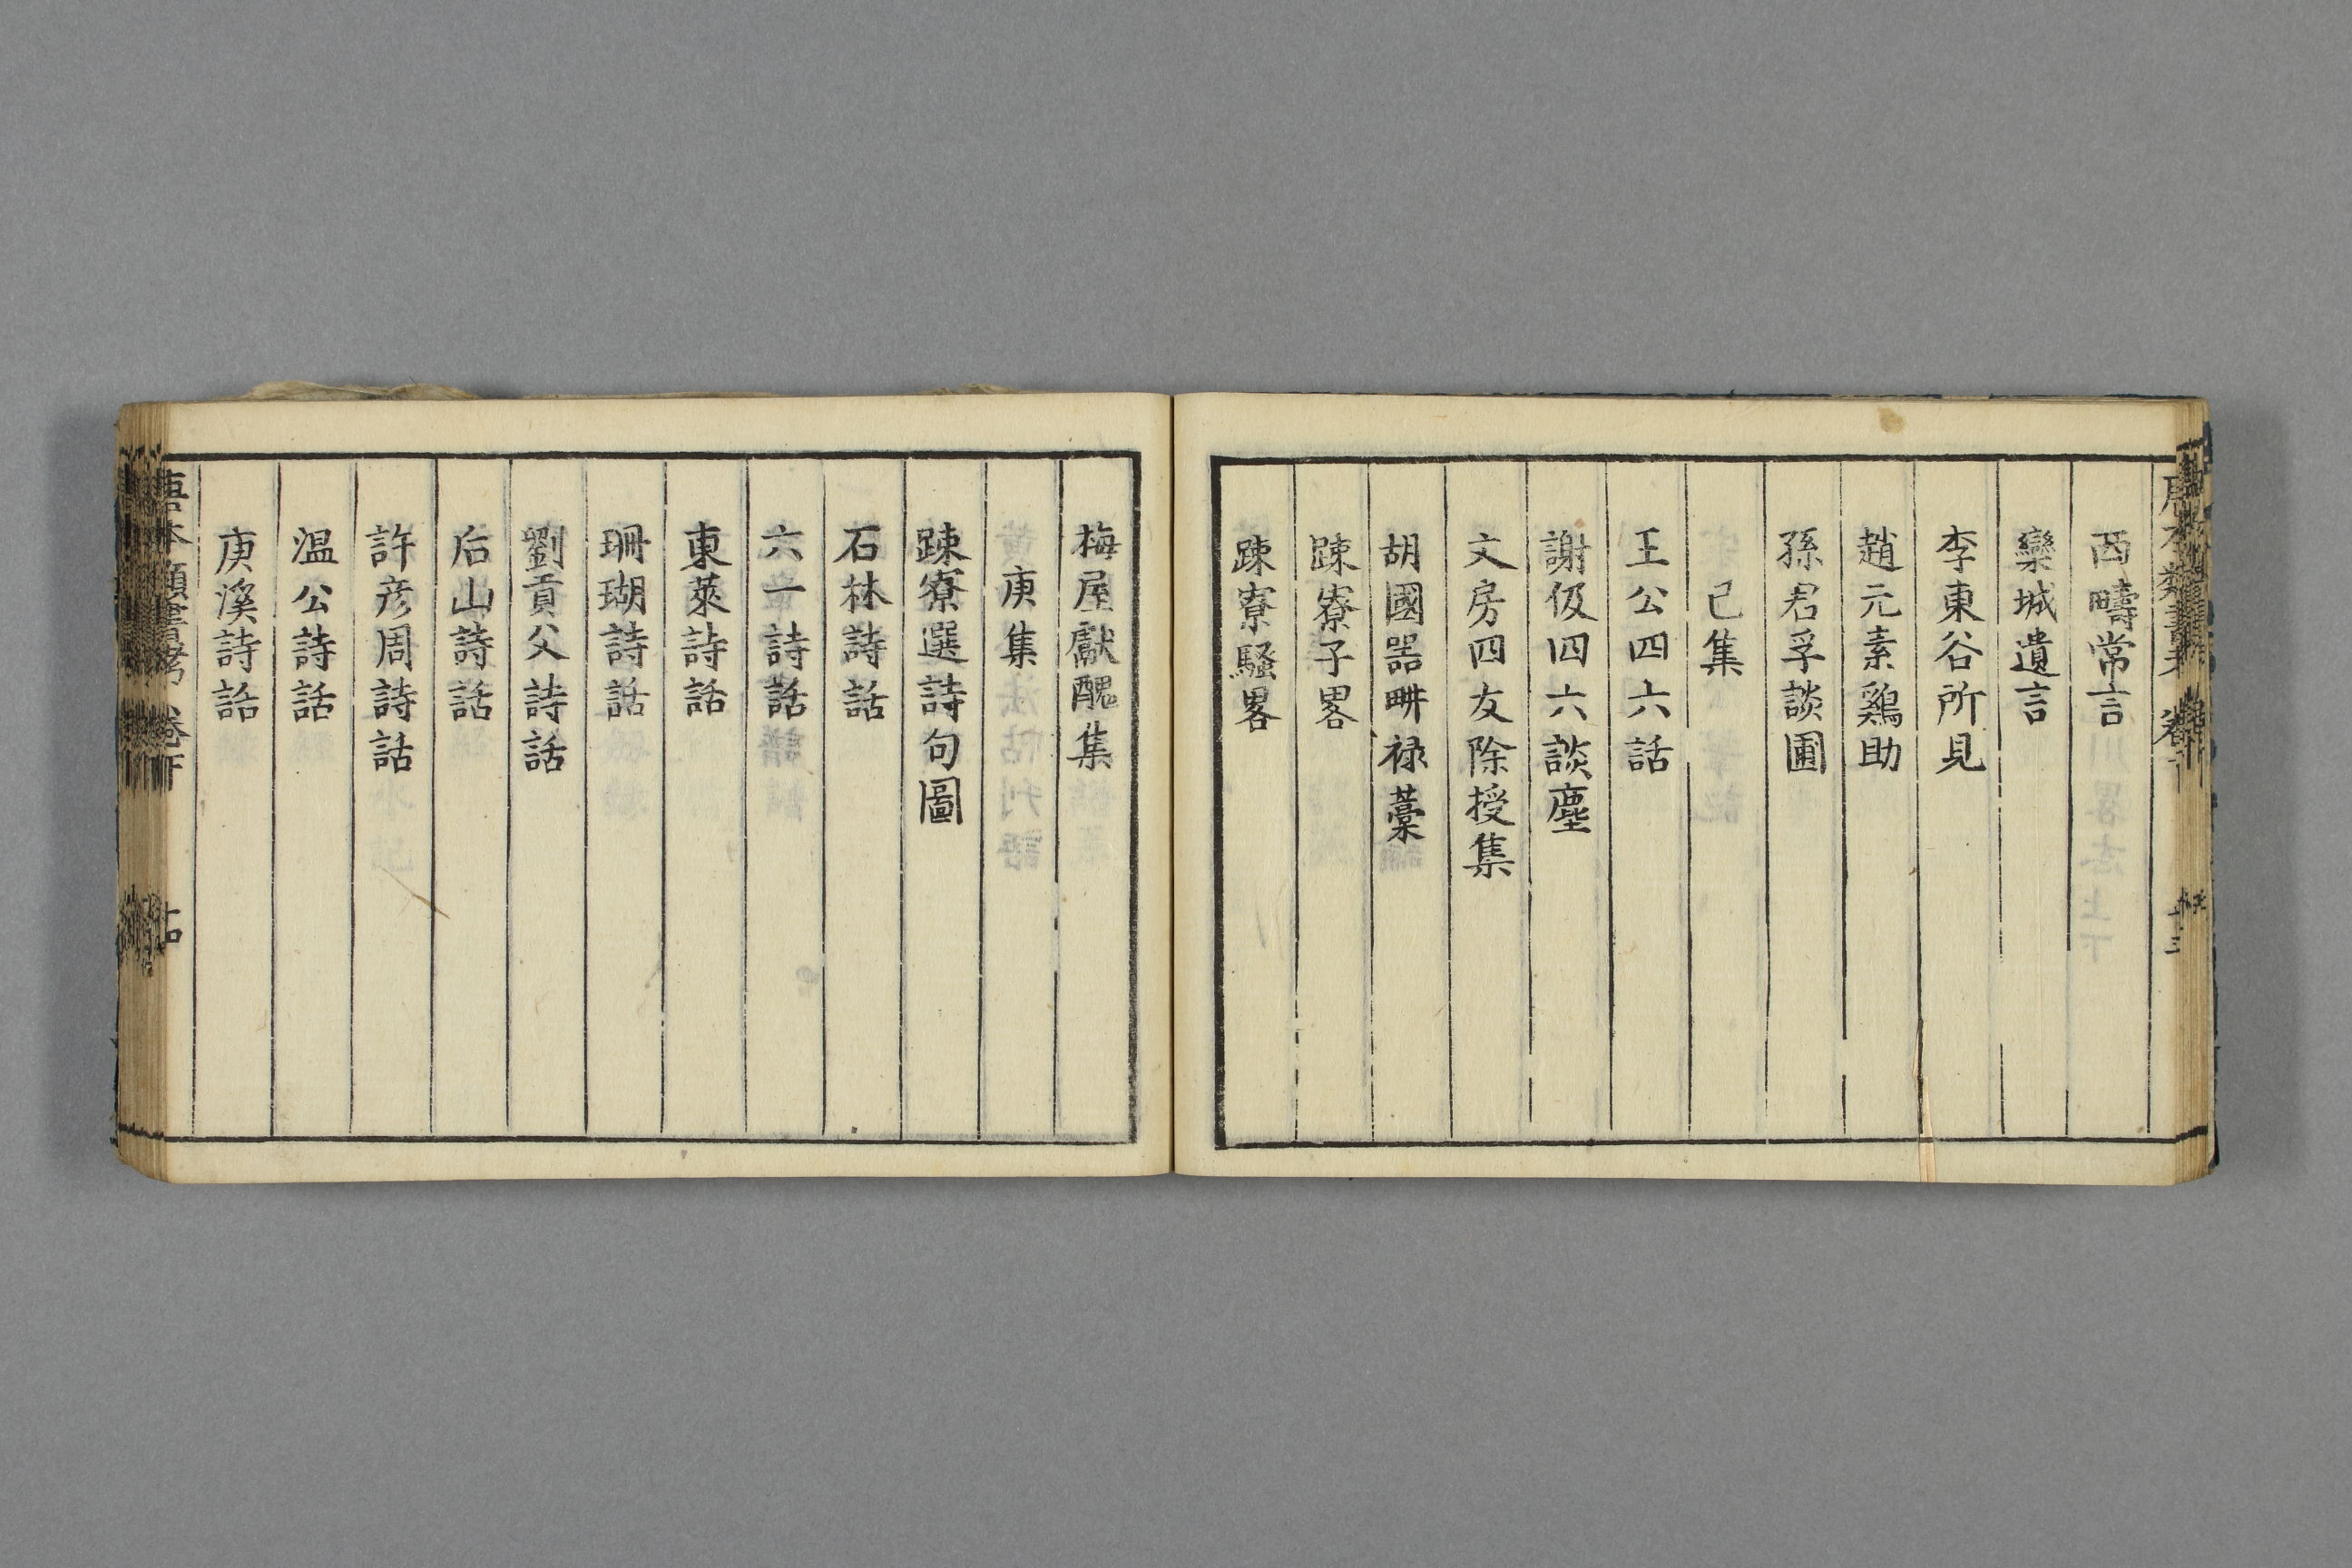 西疇常言
欒城遺言
李東谷所見
趙元素鷄助
孫君孚談圃
己集
王公四六話
謝伋四六談麈
文房四友除授集
胡國器畊祿藁
踈寮子畧
踈寮騷畧
梅屋獻醜集
庚集
踈寮選詩句圖
石林詩話
六一詩話
東萊詩話
珊瑚詩話
劉貢父詩話
后山詩話
許彥周詩話
温公詩話
庚溪詩話
唐本類書考 卷下
十四